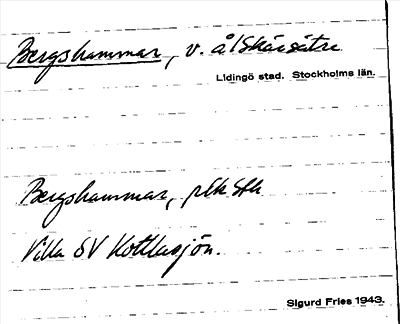 Bergshammar, v. å/Skärsätra
Lidingö stad. Stockholms län.
Bergshammar, plk Sth
Villa SV Kottlasjön.
Sigurd Fries 1943.